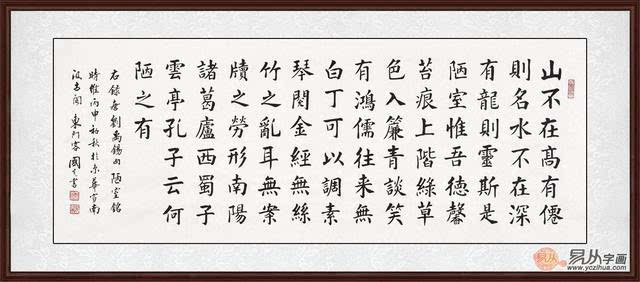 山不在高有僊
則名水不在深
有龍則靈斯是
陋室惟吾德馨
苔痕上階綠草
色入簾青談笑
有鴻儒往來無
白丁可以調素
琴閱金經無絲
竹之亂耳無案
牘之勞形南陽
諸葛廬西蜀子
雲亭孔子云何
陋之有
右錄唐劉禹錫句陋室銘
時維丙申初秋於京華宣南
易从字画
www.yczihua.com